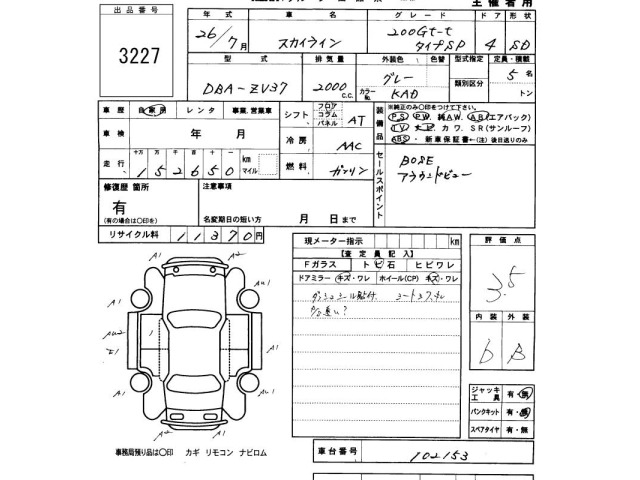 主催者用
出品番号 3227
年式 車名 グレード ドア 形状
26/7月 スカイライン 200GT-t タイプSP 4 SD
型式 排気量 外装色 色替 型式指定 定員・積載
DBA-ZV37 2000 c.c. グレー カラーNo. KAD 類別区分 5名 トン
車歴 自家用 レンタ 事業、営業車
シフト フロア コラム パネル AT
装備品 ※純正のみ〇印をつけて下さい。
PS PW 純AW. AB(エアバック)
TV ナビ カワ. SR(サンルーフ)
ABS ・新車保証書←(注)後日送りのみ
車検 年 月
冷房 AAC
走行 十万 万 千 百 十 一 km マイル
152650
燃料 ガソリン
セールスポイント
BOSE
アラウンドビュー
修復歴 箇所
有
(有の場合は〇印を)
注意事項
名変期日の短い方 月 日まで
リサイクル料 11370円
現メーター指示 km
【査定員記入】
Fガラス トビ石 ヒビワレ
ドアミラー キズ・ワレ ホイール(CP) キズ・ワレ
ダッシュシール貼付
評価点
3.5
内装 外装
b B
A1 A2 AU1
AU2 E1 A1
A1 AU1
A2 A1
ジャッキ工具 有・無
パンクキット 有・無
スペアタイヤ 有・無
事務局預り品は〇印 カギ リモコン ナビロム
車台番号 102153